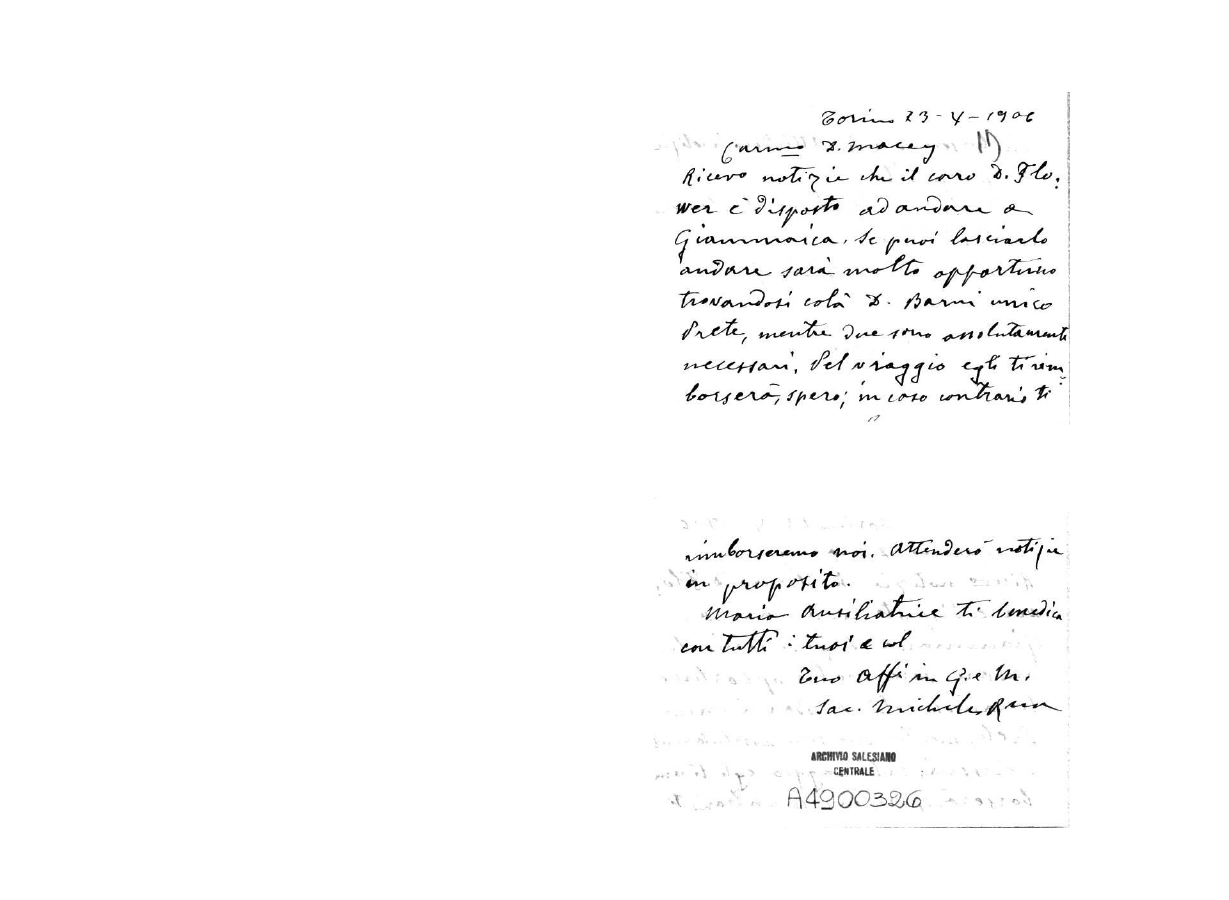 Torino 23-X-1906
Car.mo D. Macey 17)
Ricevo notizie che il caro D. Flo:
wer è disposto ad andare a
Giammaica. Se puoi lasciarlo
andare sarà molto opportuno
trovandosi colà D. Barni unico
Prete, mentre due sono assolutamente
necessari. Pel viaggio egli ti rim:
borserà, spero; in caso contrario ti
rimborseremo noi. Attenderò notizie
in proposito.
Maria Ausiliatrice ti benedica
con tutti i tuoi e col
Tuo aff in G. e M.
Sac. Michele Rua
ARCHIVIO SALESIANO
CENTRALE
A4900326